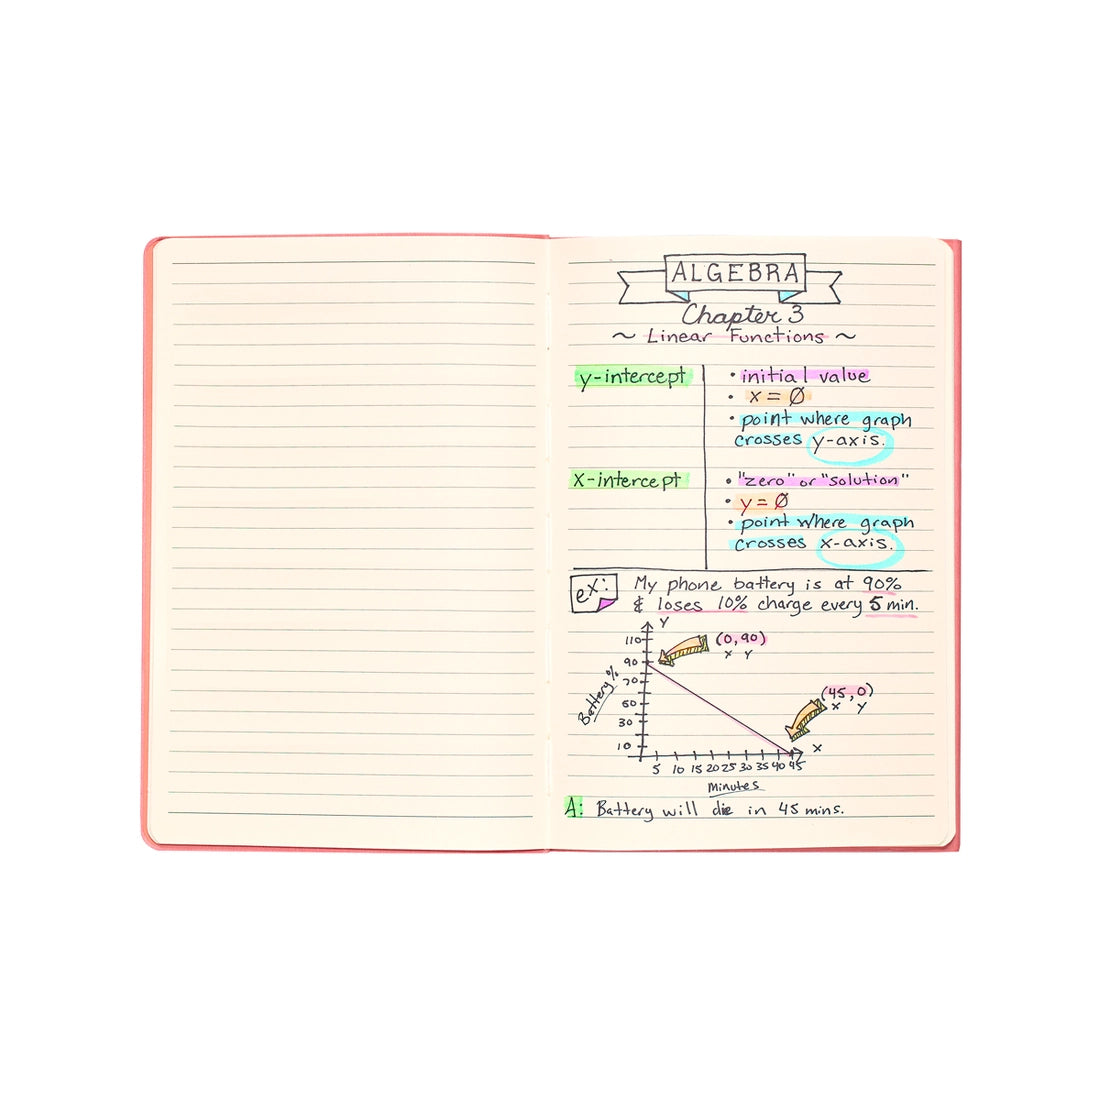 ALGEBRA
Chapter 3
~ Linear Functions ~
y-intercept
• initial value
• x = Ø
• point where graph
crosses y-axis.
x-intercept
• "zero" or "solution"
• y = Ø
• point where graph
crosses x-axis.
ex:
My phone battery is at 90%
& loses 10% charge every 5 min.
Y
110
(0,90)
x y
90
70
50
30
10
Battery %
(45,0)
x y
X
5 10 15 20 25 30 35 40 45
Minutes
A: Battery will die in 45 mins.